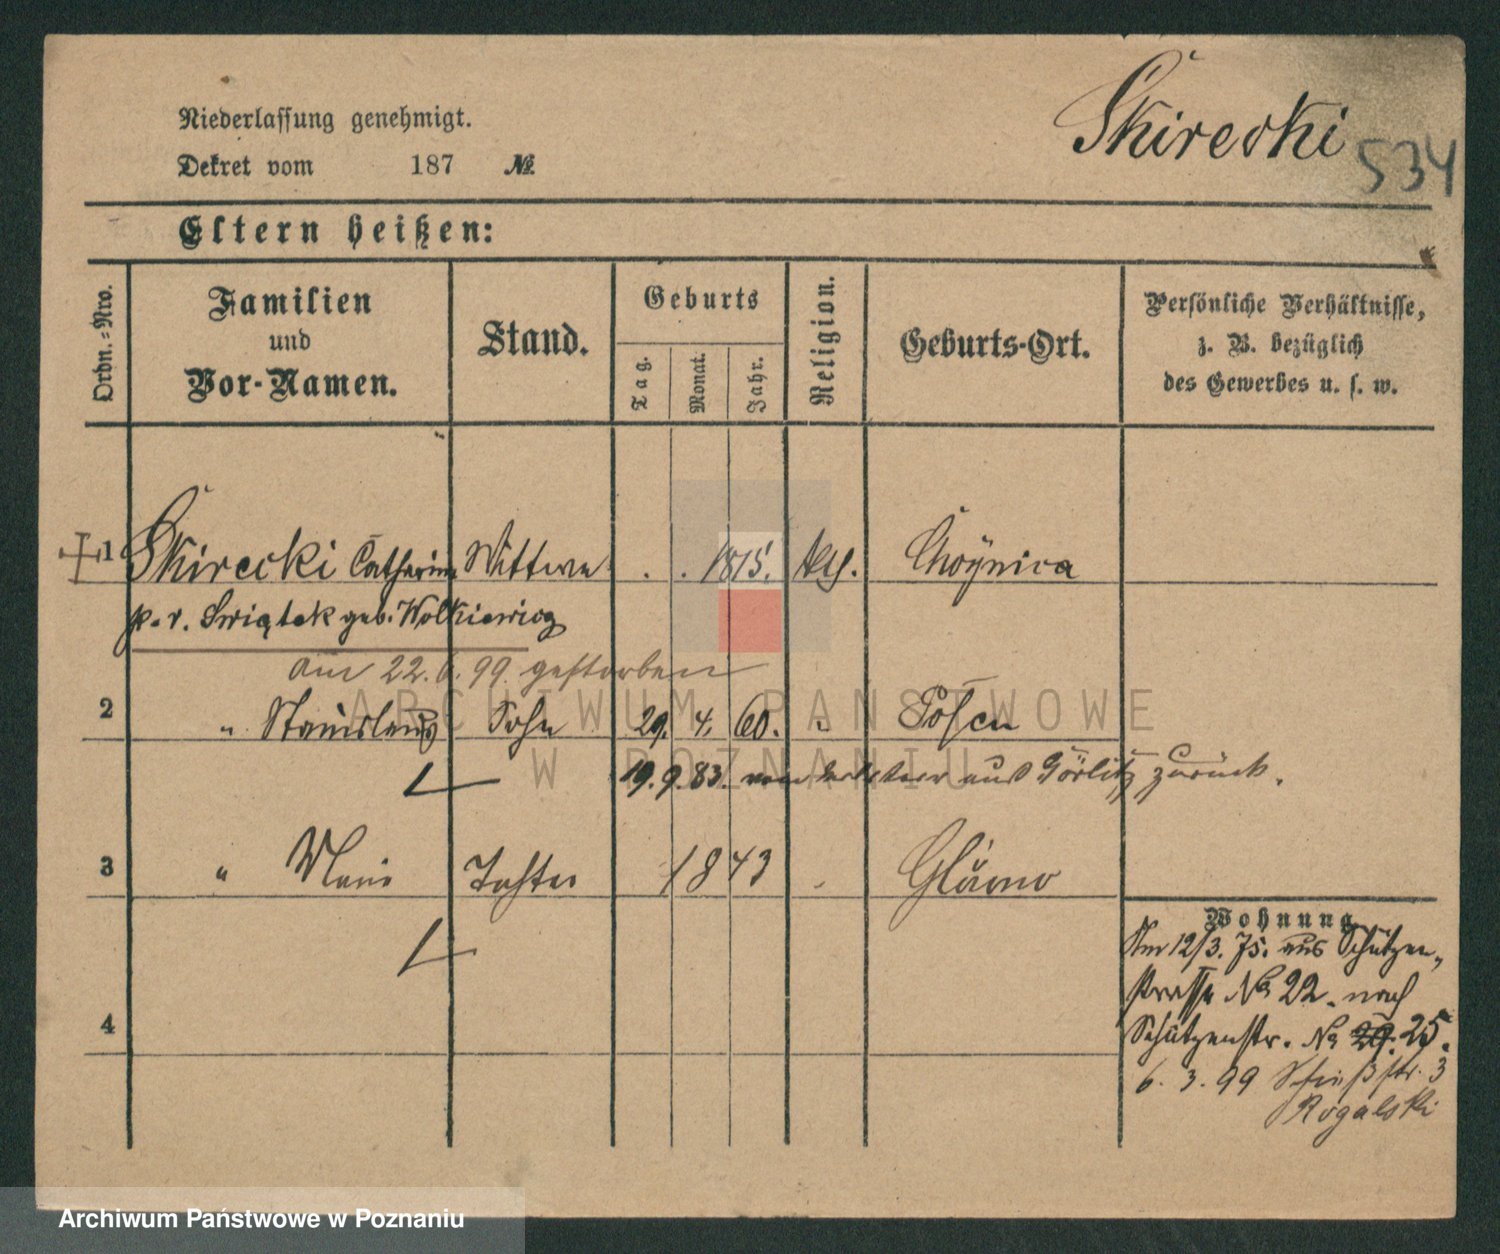 Skirecki
534
Niederlassung genehmigt.
Dekret vom 187 №
Eltern heißen:
Ordn.=Nro.
Familien
und
Vor-Namen.
Stand.
Geburts
Tag.
Monat.
Jahr.
Religion.
Geburts-Ort.
Persönliche Verhältnisse,
z. B. bezüglich
des Gewerbes u. s. w.
1 Skirecki Catharina Wittwe . . 1815. kth. Choÿnica
p. v. Swiątek geb. Wolkiewicz
am 22.6.99. gestorben
2 " Stanislaus Sohn 29. 4. 60. " Posen
19.9.83. vom aus Görlitz zurück.
3 " Marie Tochter 1843 " Glówno
4
Wohnung
Am 12/3. 75. aus Schützen-
strasse No 22. nach
Schützenstr. No 29. 25.
6. 3. 99 Schießstr. 3
Rogalski
ARCHIWUM PAŃSTWOWE
W POZNANIU
Archiwum Państwowe w Poznaniu